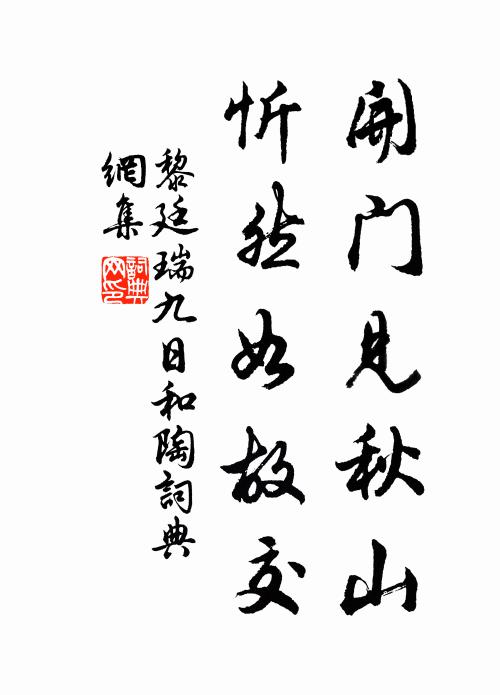 開門見秋山
忻然如故交
黎廷瑞九日和陶詞典
網集
詞典網印